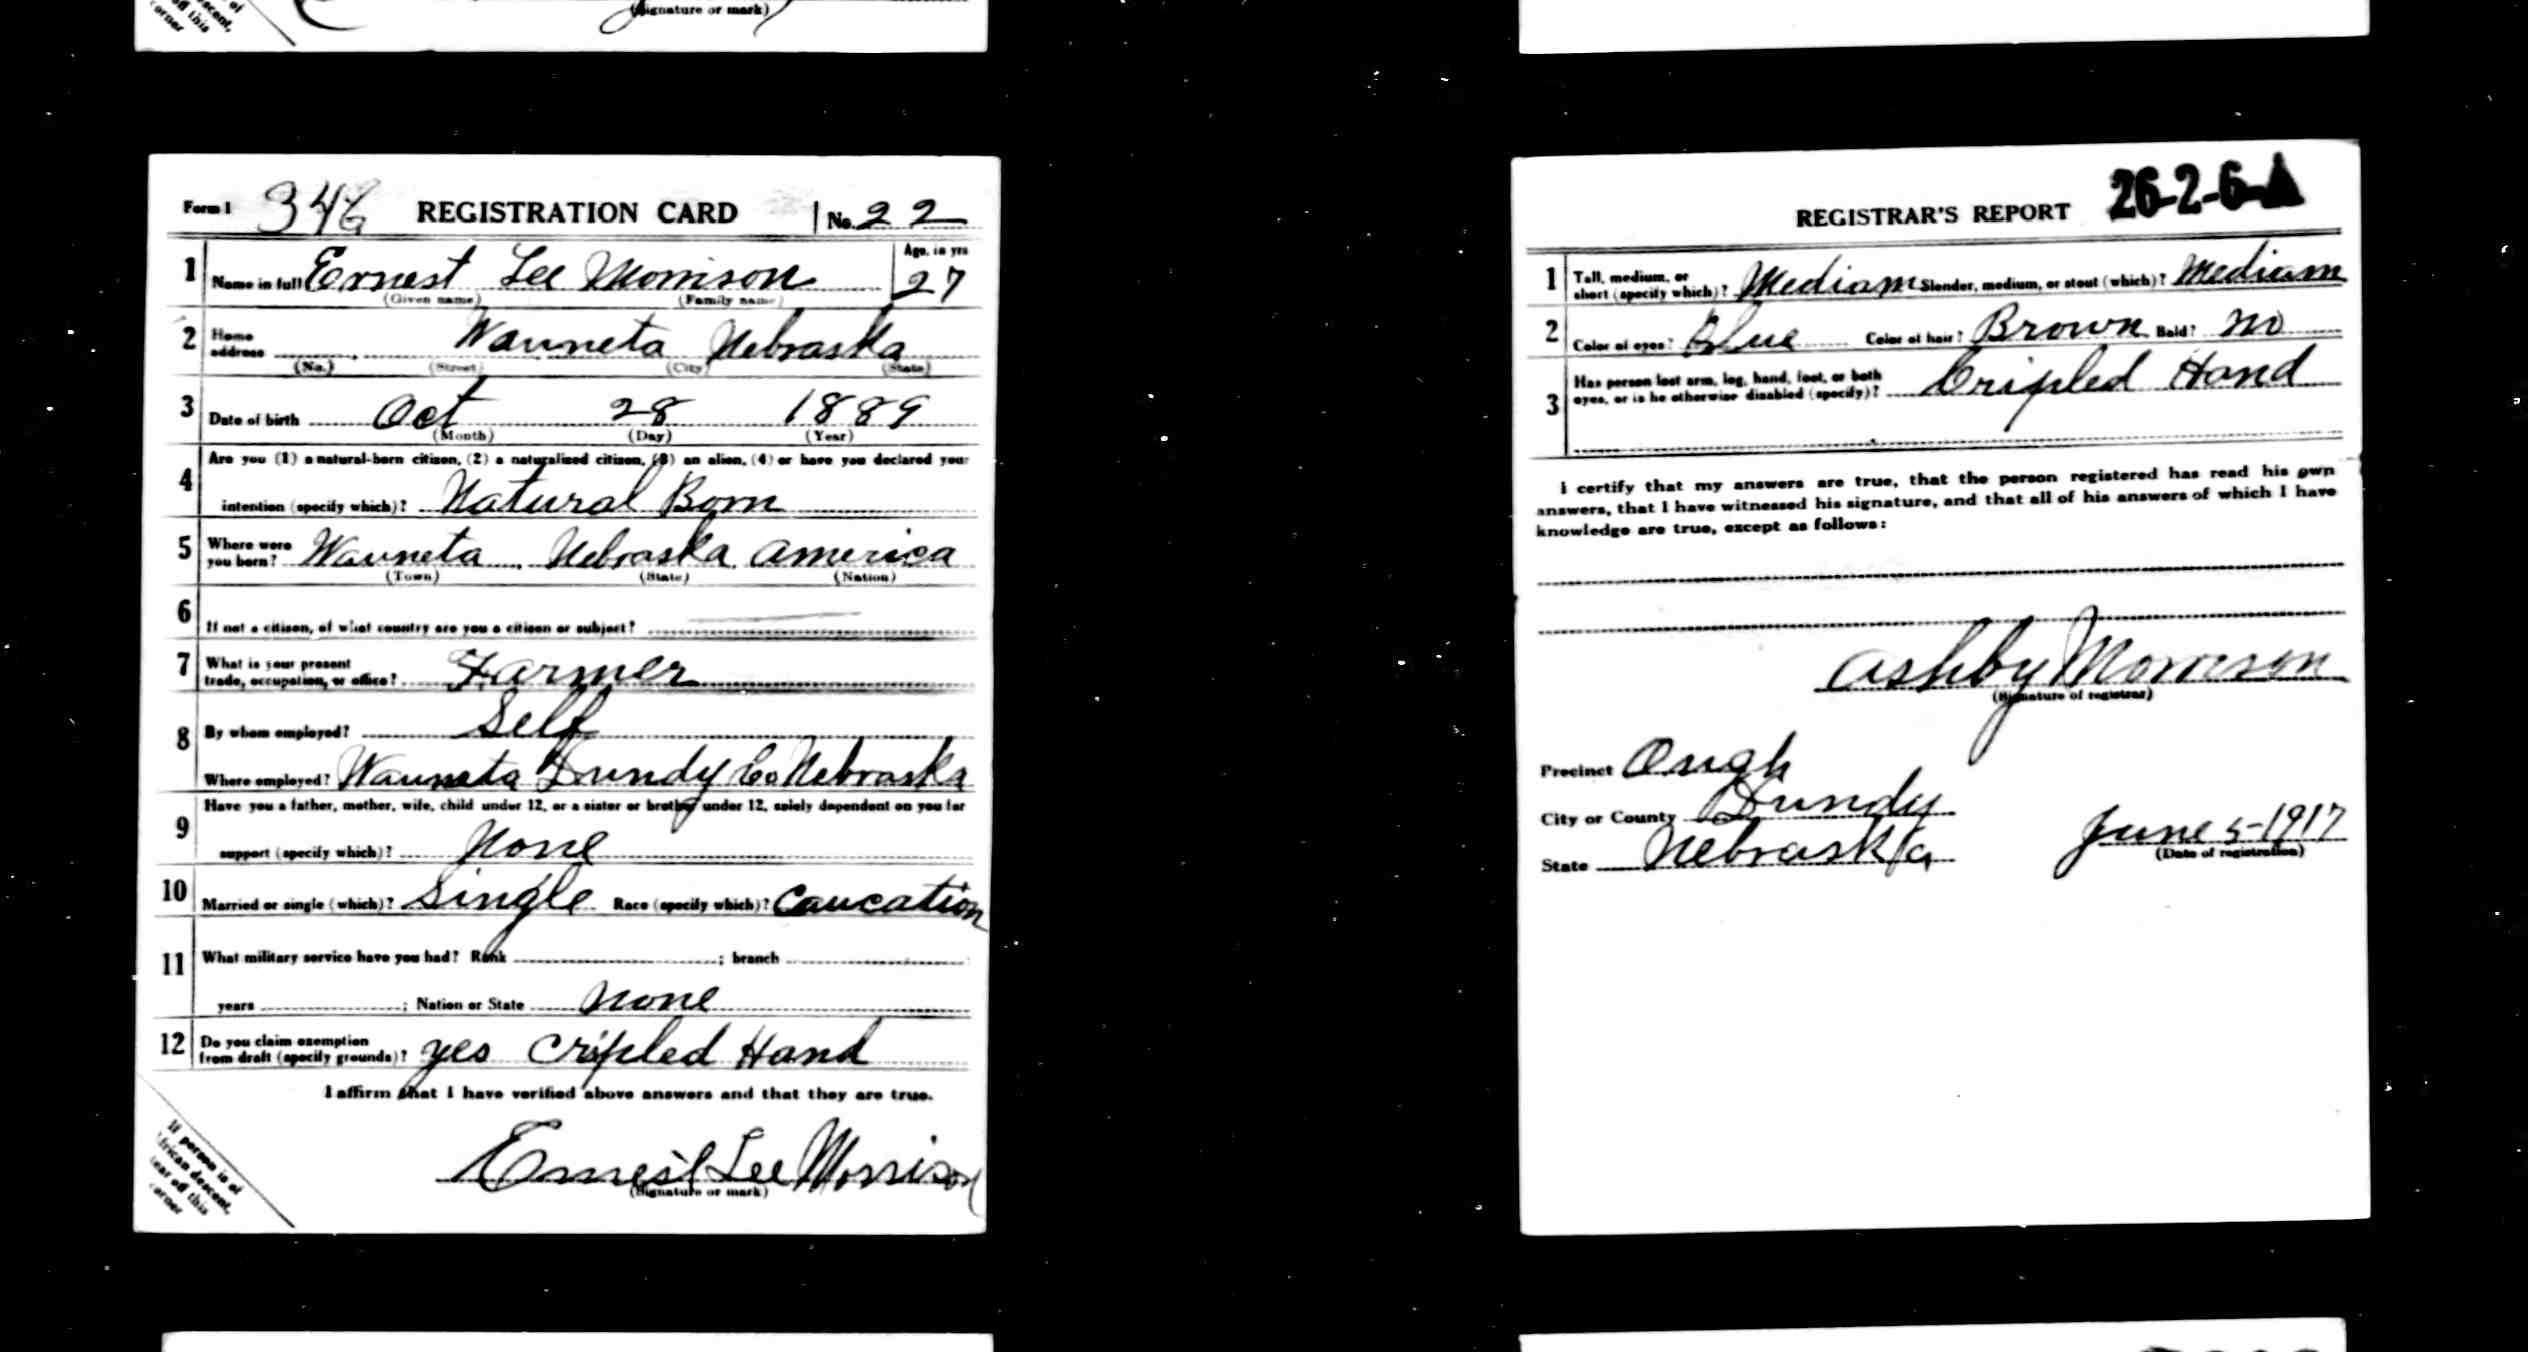 (Signature or mark)
Form 1 346 REGISTRATION CARD No. 22
1 Name in full Ernest Lee Morrison Age, in yrs 27
(Given name) (Family name)
2 Home address Wauneta Nebraska
(No.) (Street) (City) (State)
3 Date of birth Oct 28 1889
(Month) (Day) (Year)
4 Are you (1) a natural-born citizen, (2) a naturalized citizen, (3) an alien, (4) or have you declared your
intention (specify which)? Natural Born
5 Where were you born? Wauneta Nebraska America
(Town) (State) (Nation)
6 If not a citizen, of what country are you a citizen or subject?
7 What is your present trade, occupation, or office? Farmer
8 By whom employed? Self
Where employed? Wauneta Dundy Co Nebraska
9 Have you a father, mother, wife, child under 12, or a sister or brother under 12, solely dependent on you for
support (specify which)? None
10 Married or single (which)? Single Race (specify which)? Caucation
11 What military service have you had? Rank ; branch
years ; Nation or State None
12 Do you claim exemption from draft (specify grounds)? yes Cripled Hand
I affirm that I have verified above answers and that they are true.
Ernest Lee Morrison
(Signature or mark)
If person is of
African descent,
tear off this
corner
REGISTRAR'S REPORT 26-2-6-A
1 Tall, medium, or short (specify which)? Mediam Slender, medium, or stout (which)? Mediam
2 Color of eyes? Blue Color of hair? Brown Bald? No
3 Has person lost arm, leg, hand, foot, or both eyes, or is he otherwise disabled (specify)? Cripled Hand
I certify that my answers are true, that the person registered has read his own
answers, that I have witnessed his signature, and that all of his answers of which I have
knowledge are true, except as follows:
Ashby Morrison
(Signature of registrar)
Precinct Ough
City or County Dundy
State Nebraska June 5-1917
(Date of registration)